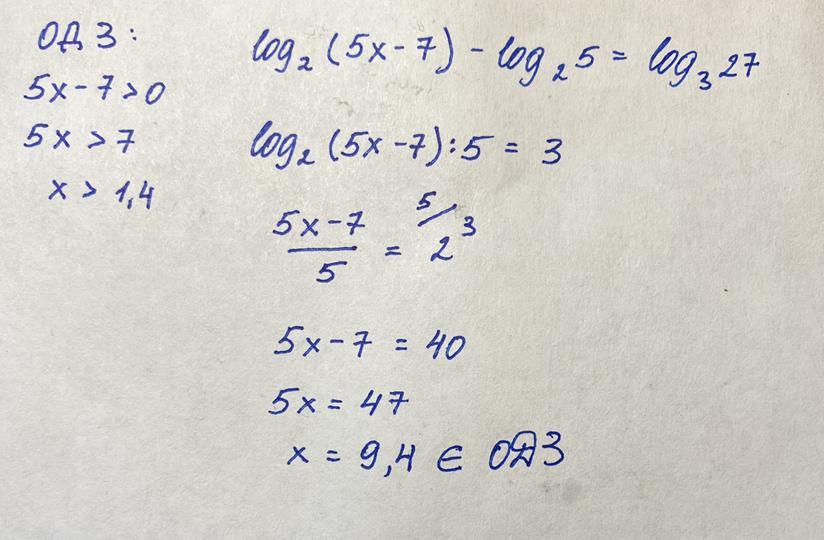 ОДЗ:
5x-7>0
5x>7
x>1,4
log₂(5x-7)-log₂5=log₃27
log₂(5x-7):5=3
(5x-7)/5=2³ ⁵⁄
5x-7=40
5x=47
x=9,4 ∈ ОДЗ